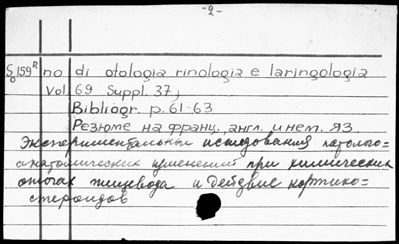 -2-
So 159 R no di otologia rinologia e laringologia
Vol 69 Suppl. 37,
Bibliogr. p. 61-63
Резюме на франц. англ. и нем. яз.
Экспериментальные исследования патолого=
анатомических изменений при химических
ожогах пищевода и действие кортико=
стероидов